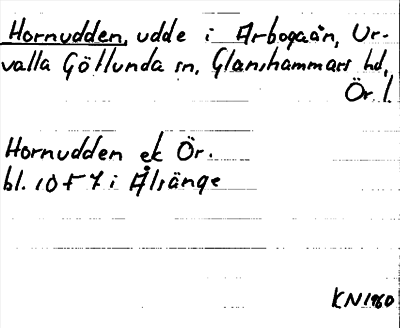 Hornudden, udde i Arbogaån, Ur-
valla Götlunda sn, Glanshammars hd,
Ör l.
Hornudden ek Ör.
bl. 10 F 7 i Älvänge
KN 1960